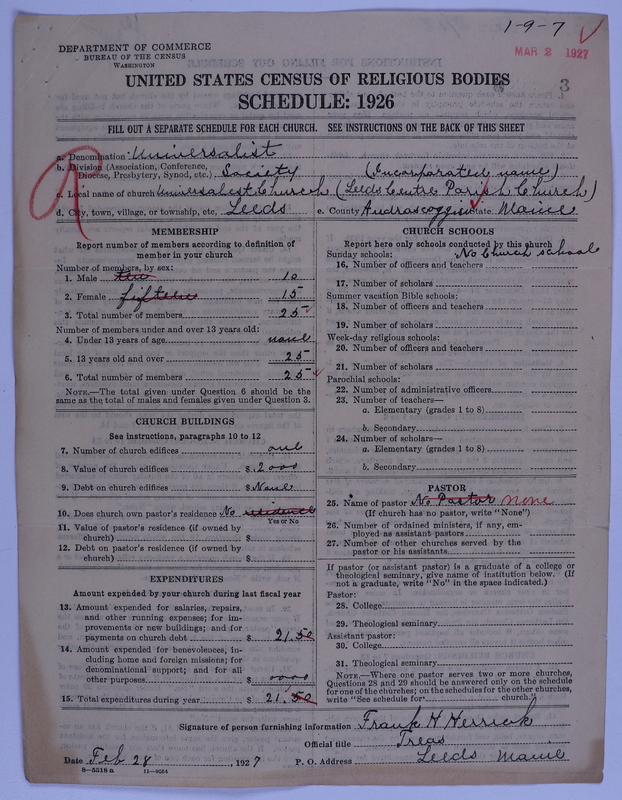 1-9-7
MAR 2 1927
3
DEPARTMENT OF COMMERCE
BUREAU OF THE CENSUS
WASHINGTON
UNITED STATES CENSUS OF RELIGIOUS BODIES
SCHEDULE: 1926
FILL OUT A SEPARATE SCHEDULE FOR EACH CHURCH. SEE INSTRUCTIONS ON THE BACK OF THIS SHEET
a. Denomination Universalist
b. Division (Association, Conference, Diocese, Presbytery, Synod, etc.) Society (Incorporated name)
c. Local name of church Universalist Church (Leeds Centre Parish Church)
d. City, town, village, or township, etc. Leeds e. County Androscoggin State Maine
MEMBERSHIP
Report number of members according to definition of
member in your church
Number of members, by sex:
1. Male ten 10
2. Female fifteen 15
3. Total number of members 25
Number of members under and over 13 years old:
4. Under 13 years of age none
5. 13 years old and over 25
6. Total number of members 25
NOTE.—The total given under Question 6 should be the
same as the total of males and females given under Question 3.
CHURCH BUILDINGS
See instructions, paragraphs 10 to 12
7. Number of church edifices one
8. Value of church edifices $ 2000
9. Debt on church edifices $ None
10. Does church own pastor's residence No residence
Yes or No
11. Value of pastor's residence (if owned by
church) $
12. Debt on pastor's residence (if owned by
church) $
EXPENDITURES
Amount expended by your church during last fiscal year
13. Amount expended for salaries, repairs,
and other running expenses; for im-
provements or new buildings; and for
payments on church debt $ 21.50
14. Amount expended for benevolences, in-
cluding home and foreign missions; for
denominational support; and for all
other purposes $ 0000
15. Total expenditures during year $ 21.50
CHURCH SCHOOLS
Report here only schools conducted by this church
Sunday schools: No Church schools
16. Number of officers and teachers
17. Number of scholars
Summer vacation Bible schools:
18. Number of officers and teachers
19. Number of scholars
Week-day religious schools:
20. Number of officers and teachers
21. Number of scholars
Parochial schools:
22. Number of administrative officers
23. Number of teachers—
a. Elementary (grades 1 to 8)
b. Secondary
24. Number of scholars—
a. Elementary (grades 1 to 8)
b. Secondary
PASTOR
25. Name of pastor No Pastor none
(If church has no pastor, write "None")
26. Number of ordained ministers, if any, em-
ployed as assistant pastors
27. Number of other churches served by the
pastor or his assistants
If pastor (or assistant pastor) is a graduate of a college or
theological seminary, give name of institution below. (If
not a graduate, write "No" in the space indicated.)
Pastor:
28. College
29. Theological seminary
Assistant pastor:
30. College
31. Theological seminary
NOTE.—Where one pastor serves two or more churches,
Questions 28 and 29 should be answered only on the schedule
for one of the churches; on the schedules for the other churches,
write "See schedule for church."
Signature of person furnishing information Frank H Herrick
Official title Treas
Date Feb 28, 1927 P. O. Address Leeds Maine
8—5518 a 11—9264